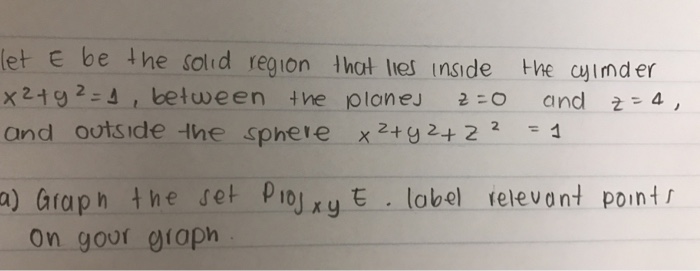 let E be the solid region that lies inside the cylinder
x²+y²=1, between the planes z=0 and z=4,
and outside the sphere x²+y²+z² = 1
a) Graph the set Proj xy E. label relevant points
on your graph.